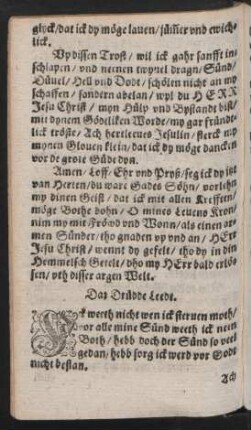 glyck/dat ick dy möge lauen/jümer vnd ewich-
lick.
Vp dissen Trost/ wil ick gahr sanfft in-
schlapen/ vnd nenen twyuel dragn/ Sünd/
Düuel/ Hell vnd Dodt/ schölen nicht an my
schaffen/ sandern abelan/ wyl du HERR
Jesu Christ/ myn Hülp vnd Bystandt bist/
mit dynem Göötliken Worde/my gar fründt-
lick trößte/ Ach hertleeues Jesulin/ sterck my
mynen Glouen klein/dat ick dy möge dancken
vor de grote Güde dyn.
Amen/ Loff/ Ehr vnd Pryß/seg ick dy
van Herten/du ware Gades Söhn/ vorlehn
my dinen Geist/ dat ick mit allen Krefften/
möge Bothe dohn/ O mines Leuens Kron/
nim my mit Fröwd vnd Wonn/als einen ar-
men Sünder/ tho gnaden vp vnd an/ HErr
Jesu Christ/ wennt dy gefelt/ tho dy in din
Hemmelsch Getelt/ dho my HErr bald erlö-
sen/ vth disser argen Welt.
Dat Drüdde Leedt.
Jck weeth nicht wen ick steruen moth/
vor alle mine Sünd weeth ick nein
Both/ hebb doch der Sünd so veel
gedan/ hebb sorg ick werd vor Gode
nicht bestan.
Ach